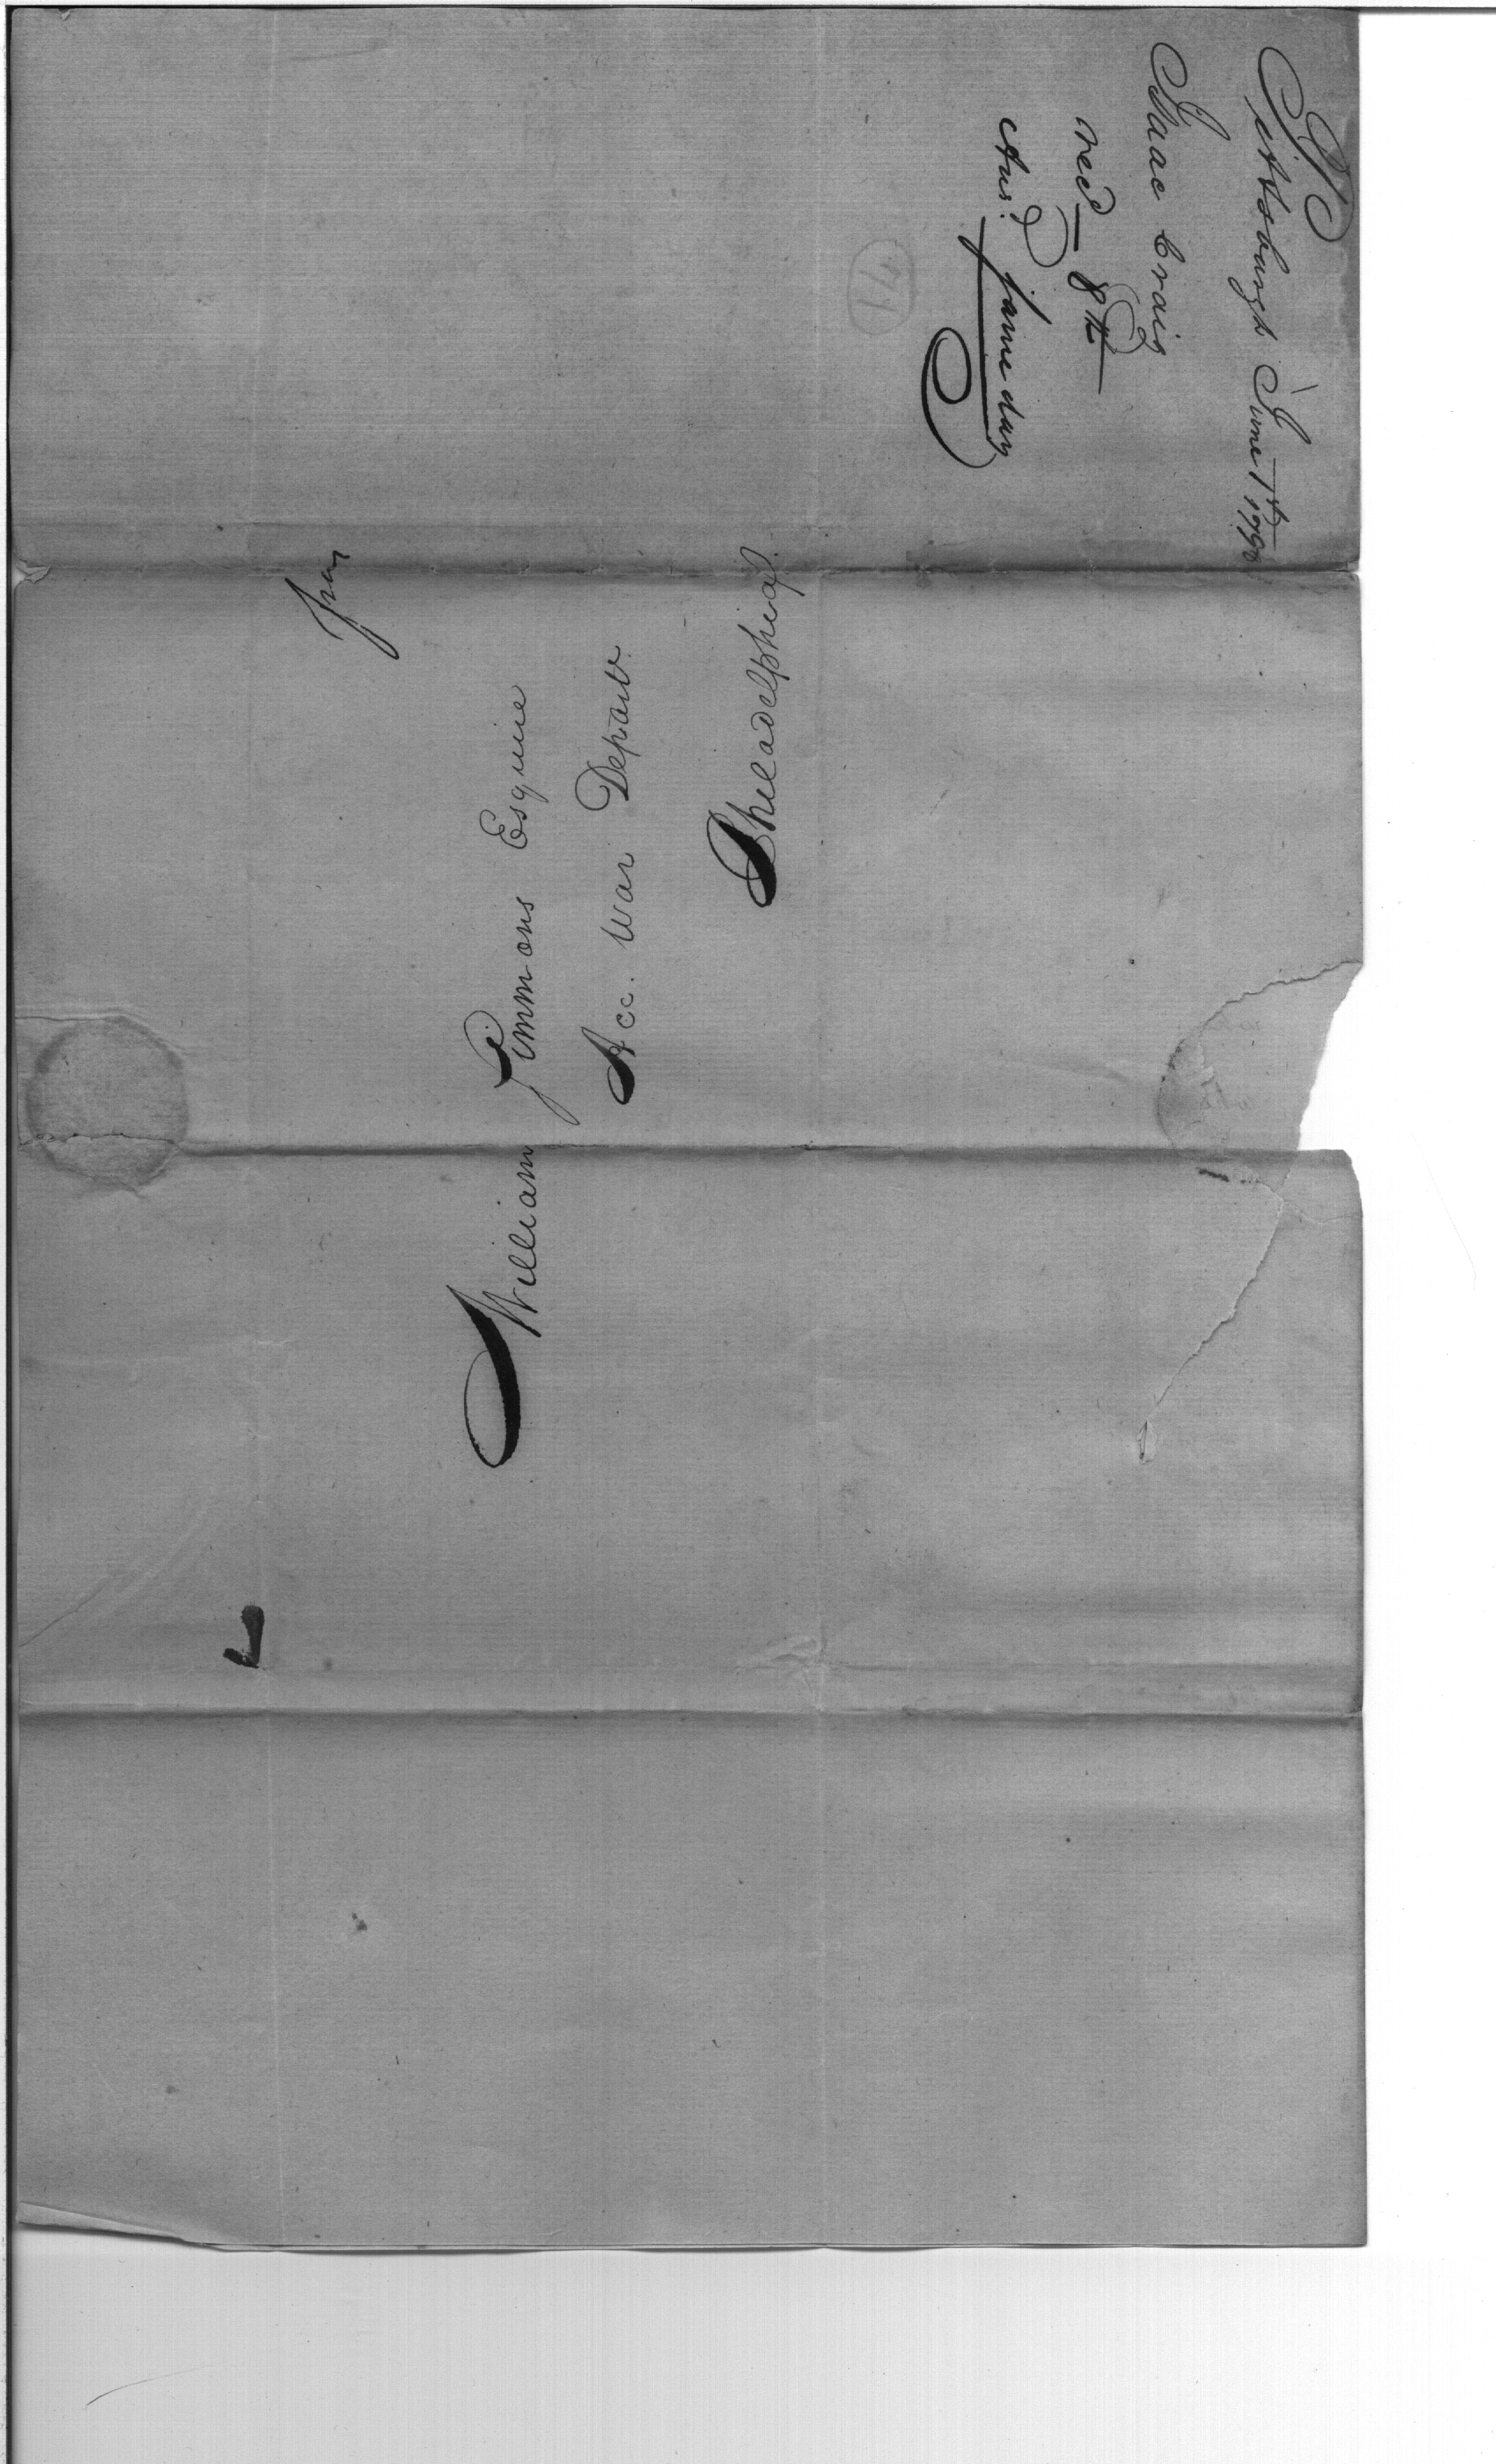 Pittsburgh June 1st 1798
Isaac Craig
recd – 8th
Ansd. same day
14
free
William Simmons Esquire
Acc. War Depart.
Philadelphia